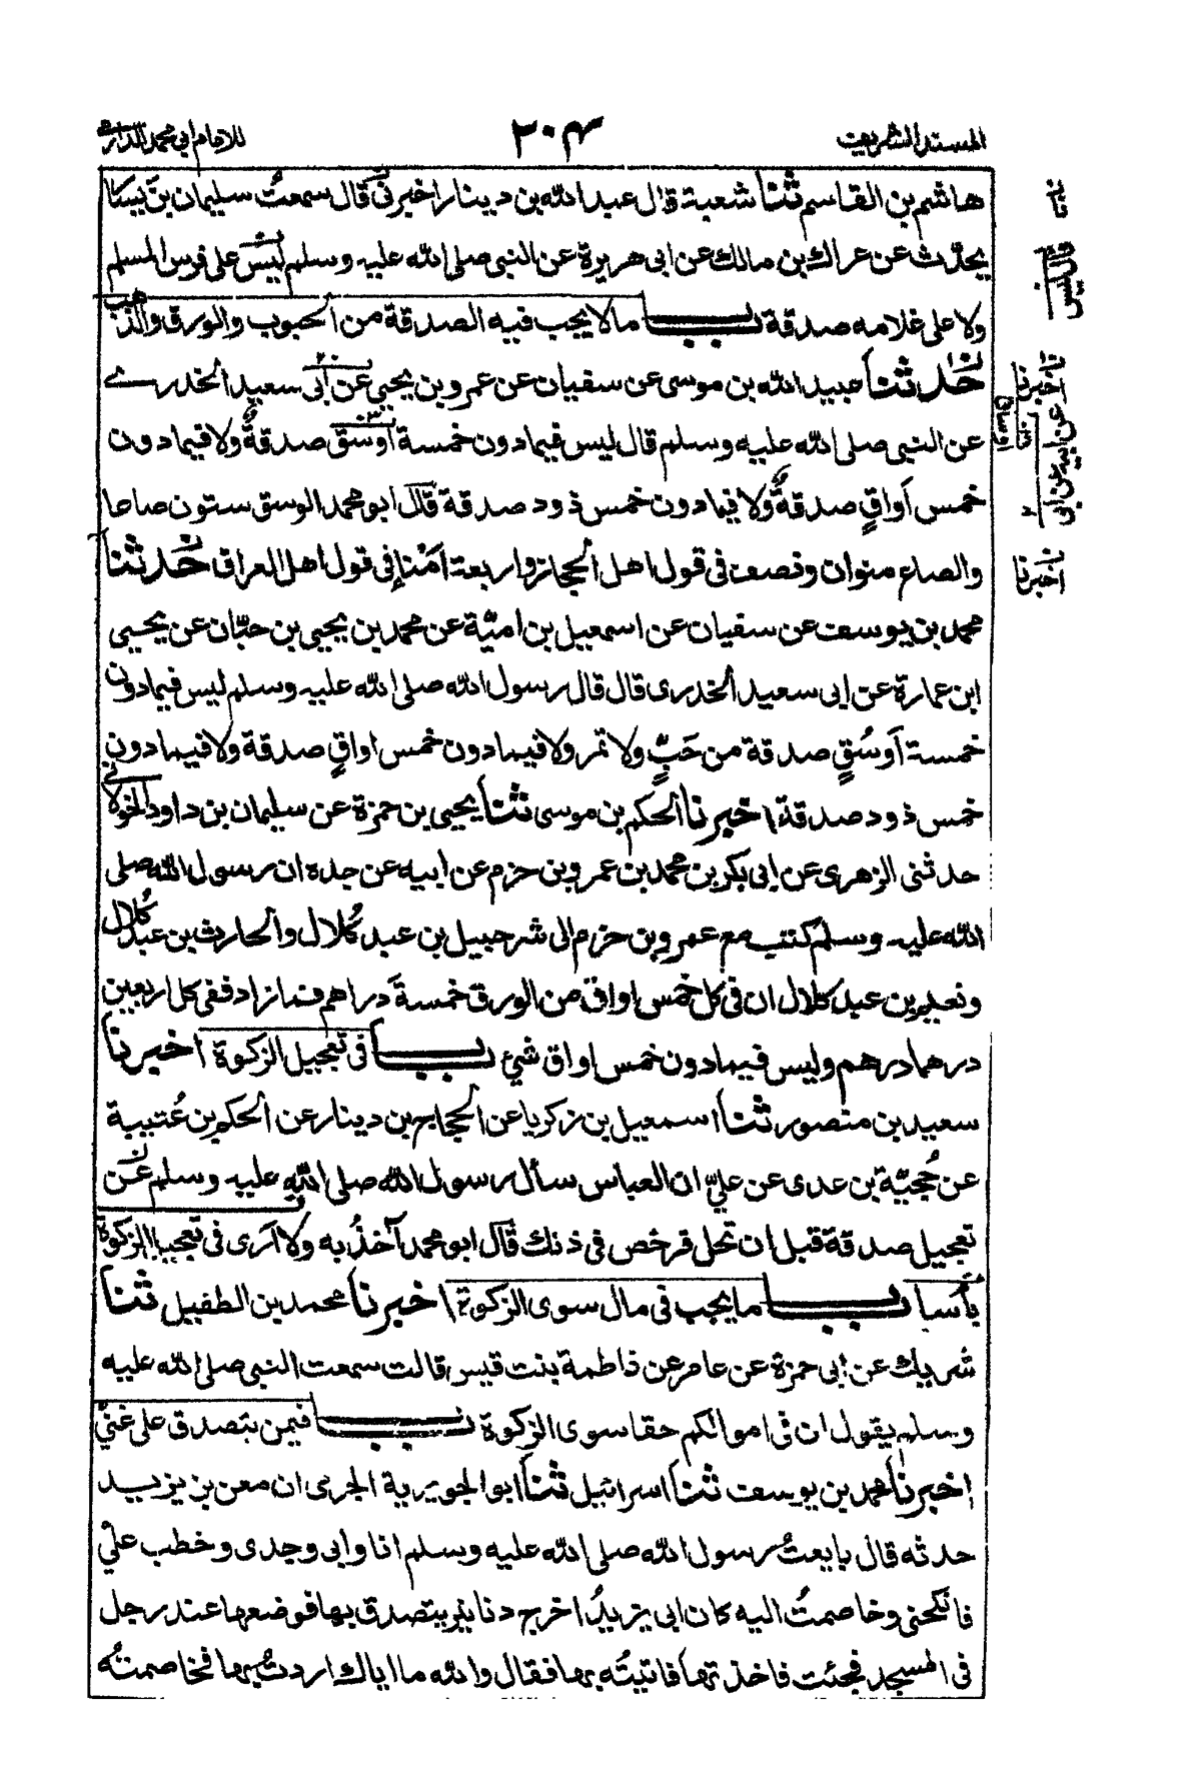 المسند الشريف
٢٠٤
للامام ابي محمد الدارمي
هاشم بن القاسم ثنا شعبة قال عبد الله بن دينار اخبرني قال سمعت سليمان بن يسار
يحدّث عن عراك بن مالك عن ابي هريرة عن النبي صلى الله عليه وسلم ليس على فرس المسلم
ولا على غلامه صدقة باب ما لا يجب فيه الصدقة من الحبوب والورق والذهب
حدثنا عبيد الله بن موسى عن سفيان عن عمرو بن يحيى عن ابي سعيد الخدرى
عن النبي صلى الله عليه وسلم قال ليس فيما دون خمسة اوسق صدقةٌ ولا فيما دون
خمس اَواقٍ صدقةٌ ولا فيما دون خمس ذود صدقة قال ابو محمد الوسق ستون صاعا
والصاع منوان ونصف في قول اهل الحجاز واربعة اَمْنَاءٍ في قول اهل العراق حدثنا
محمد بن يوسف عن سفيان عن اسمعيل بن اميّة عن محمد بن يحيى بن حبّان عن يحيى
ابن عمارة عن ابي سعيد الخدرى قال قال رسول الله صلى الله عليه وسلم ليس فيما دون
خمسة اَوسُقٍ صدقة من حَبٍّ ولا تمر ولا فيما دون خمس اواقٍ صدقة ولا فيما دون
خمس ذود صدقة اخبرنا الحكم بن موسى ثنا يحيى بن حمزة عن سليمان بن داود الخولاني
حدثنى الزهرى عن ابي بكر بن محمد بن عمرو بن حزم عن ابيه عن جده ان رسول الله صلى
الله عليه وسلم كتب مع عمرو بن حزم الى شرحبيل بن عبد كُلال والحارث بن عبد كُلال
ونعيم بن عبد كلال ان في كل خمس اواق من الورق خمسةَ دراهم فما زاد ففي كل اربعين
درهما درهم وليس فيما دون خمس اواق شئ باب في تعجيل الزكوة اخبرنا
سعيد بن منصور ثنا اسمعيل بن زكريا عن الحجاج بن دينار عن الحكم بن عُتيبة
عن حُجيّة بن عدى عن عليّ ان العباس سأل رسول الله صلى الله عليه وسلم عن
تعجيل صدقة قبل ان تحل فرخص في ذلك قال ابو محمد آخذُ به ولا اَرى في تعجيل الزكوة
بأسا باب ما يجب في مال سوى الزكوة اخبرنا محمد بن الطفيل ثنا
شريك عن ابي حمزة عن عامر عن فاطمة بنت قيس قالت سمعت النبي صلى الله عليه
وسلم يقول ان في اموالكم حقا سوى الزكوة باب فيمن يتصدق على غنيٍّ
اخبرنا محمد بن يوسف ثنا اسرائيل ثنا ابو الجويرية الجرمى ان معن بن يزيد
حدثه قال بايعتُ رسول الله صلى الله عليه وسلم انا وابى وجدى وخطب عليّ
فانكحنى وخاصمتُ اليه كان ابي يزيدُ اخرج دنانير يتصدق بها فوضعها عند رجل
في المسجد فجئت فاخذتها فاتيتُه بها فقال والله ما اياك اردتُ بها فخاصمتُه
ن ثنا
قال ليس
ن اخبرنا
عن ابيه عن ابي
اوساق
ن اخبرنا